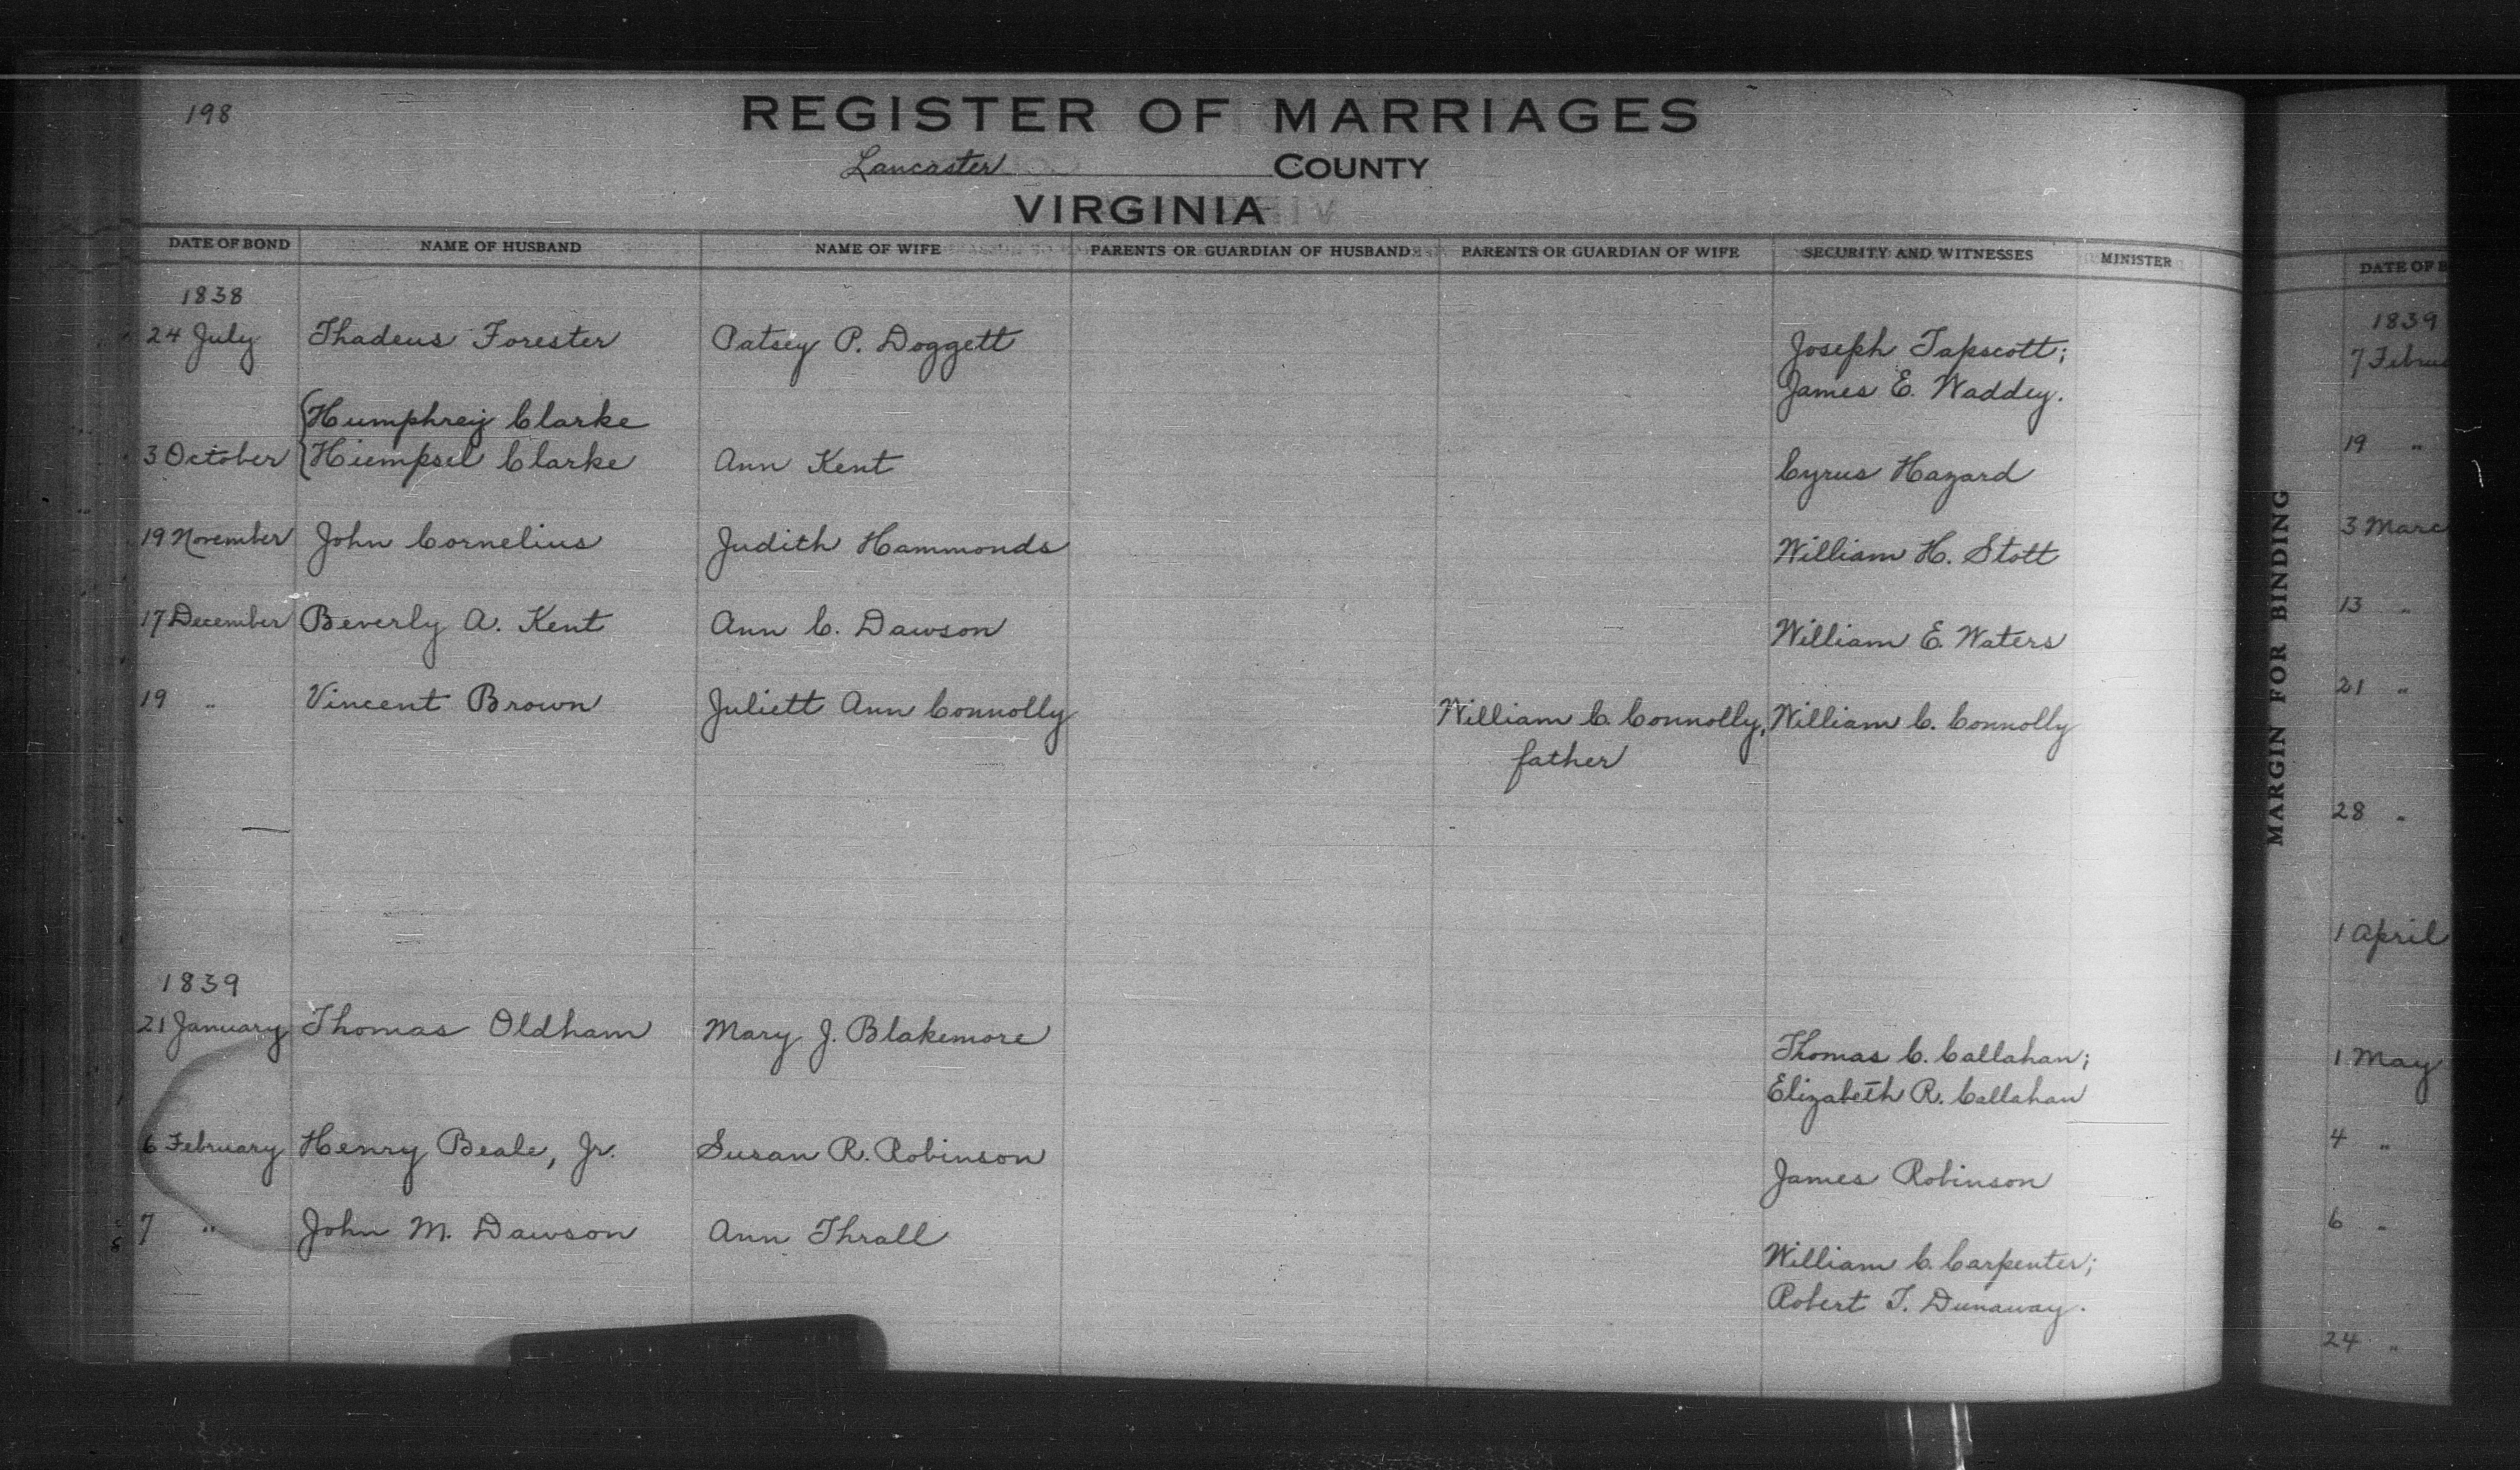 198
REGISTER OF MARRIAGES
Lancaster COUNTY
VIRGINIA
DATE OF BOND NAME OF HUSBAND NAME OF WIFE PARENTS OR GUARDIAN OF HUSBAND PARENTS OR GUARDIAN OF WIFE SECURITY AND WITNESSES MINISTER
1838
24 July Thadeus Forester Patsey P. Doggett Joseph Tapscott;
James E. Waddey.
Humphrey Clarke
3 October Hiempsel Clarke Ann Kent Cyrus Hazard
19 November John Cornelius Judith Hammonds William H. Stott
17 December Beverly A. Kent Ann C. Dawson William E. Waters
19 " Vincent Brown Juliett Ann Connolly William C. Connolly, William C. Connolly
father
1839
21 January Thomas Oldham Mary J. Blakemore Thomas C. Callahan;
Elizabeth R. Callahan
6 February Henry Beale, Jr. Susan R. Robinson James Robinson
7 " John M. Dawson Ann Thrall William C. Carpenter;
Robert T. Dunaway.
MARGIN FOR BINDING
DATE OF B
1839
7 Februa
19 "
3 Marc
13 "
21 "
28 "
1 April
1 May
4 "
6 "
24 "